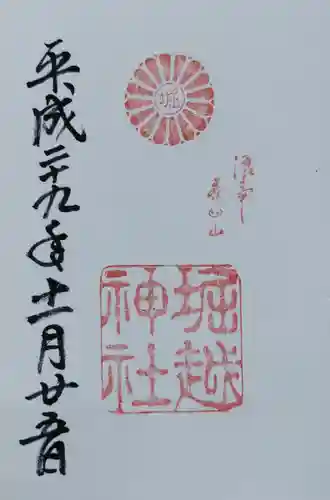 堀
堀越
神社
平成二十九年十一月廿五日